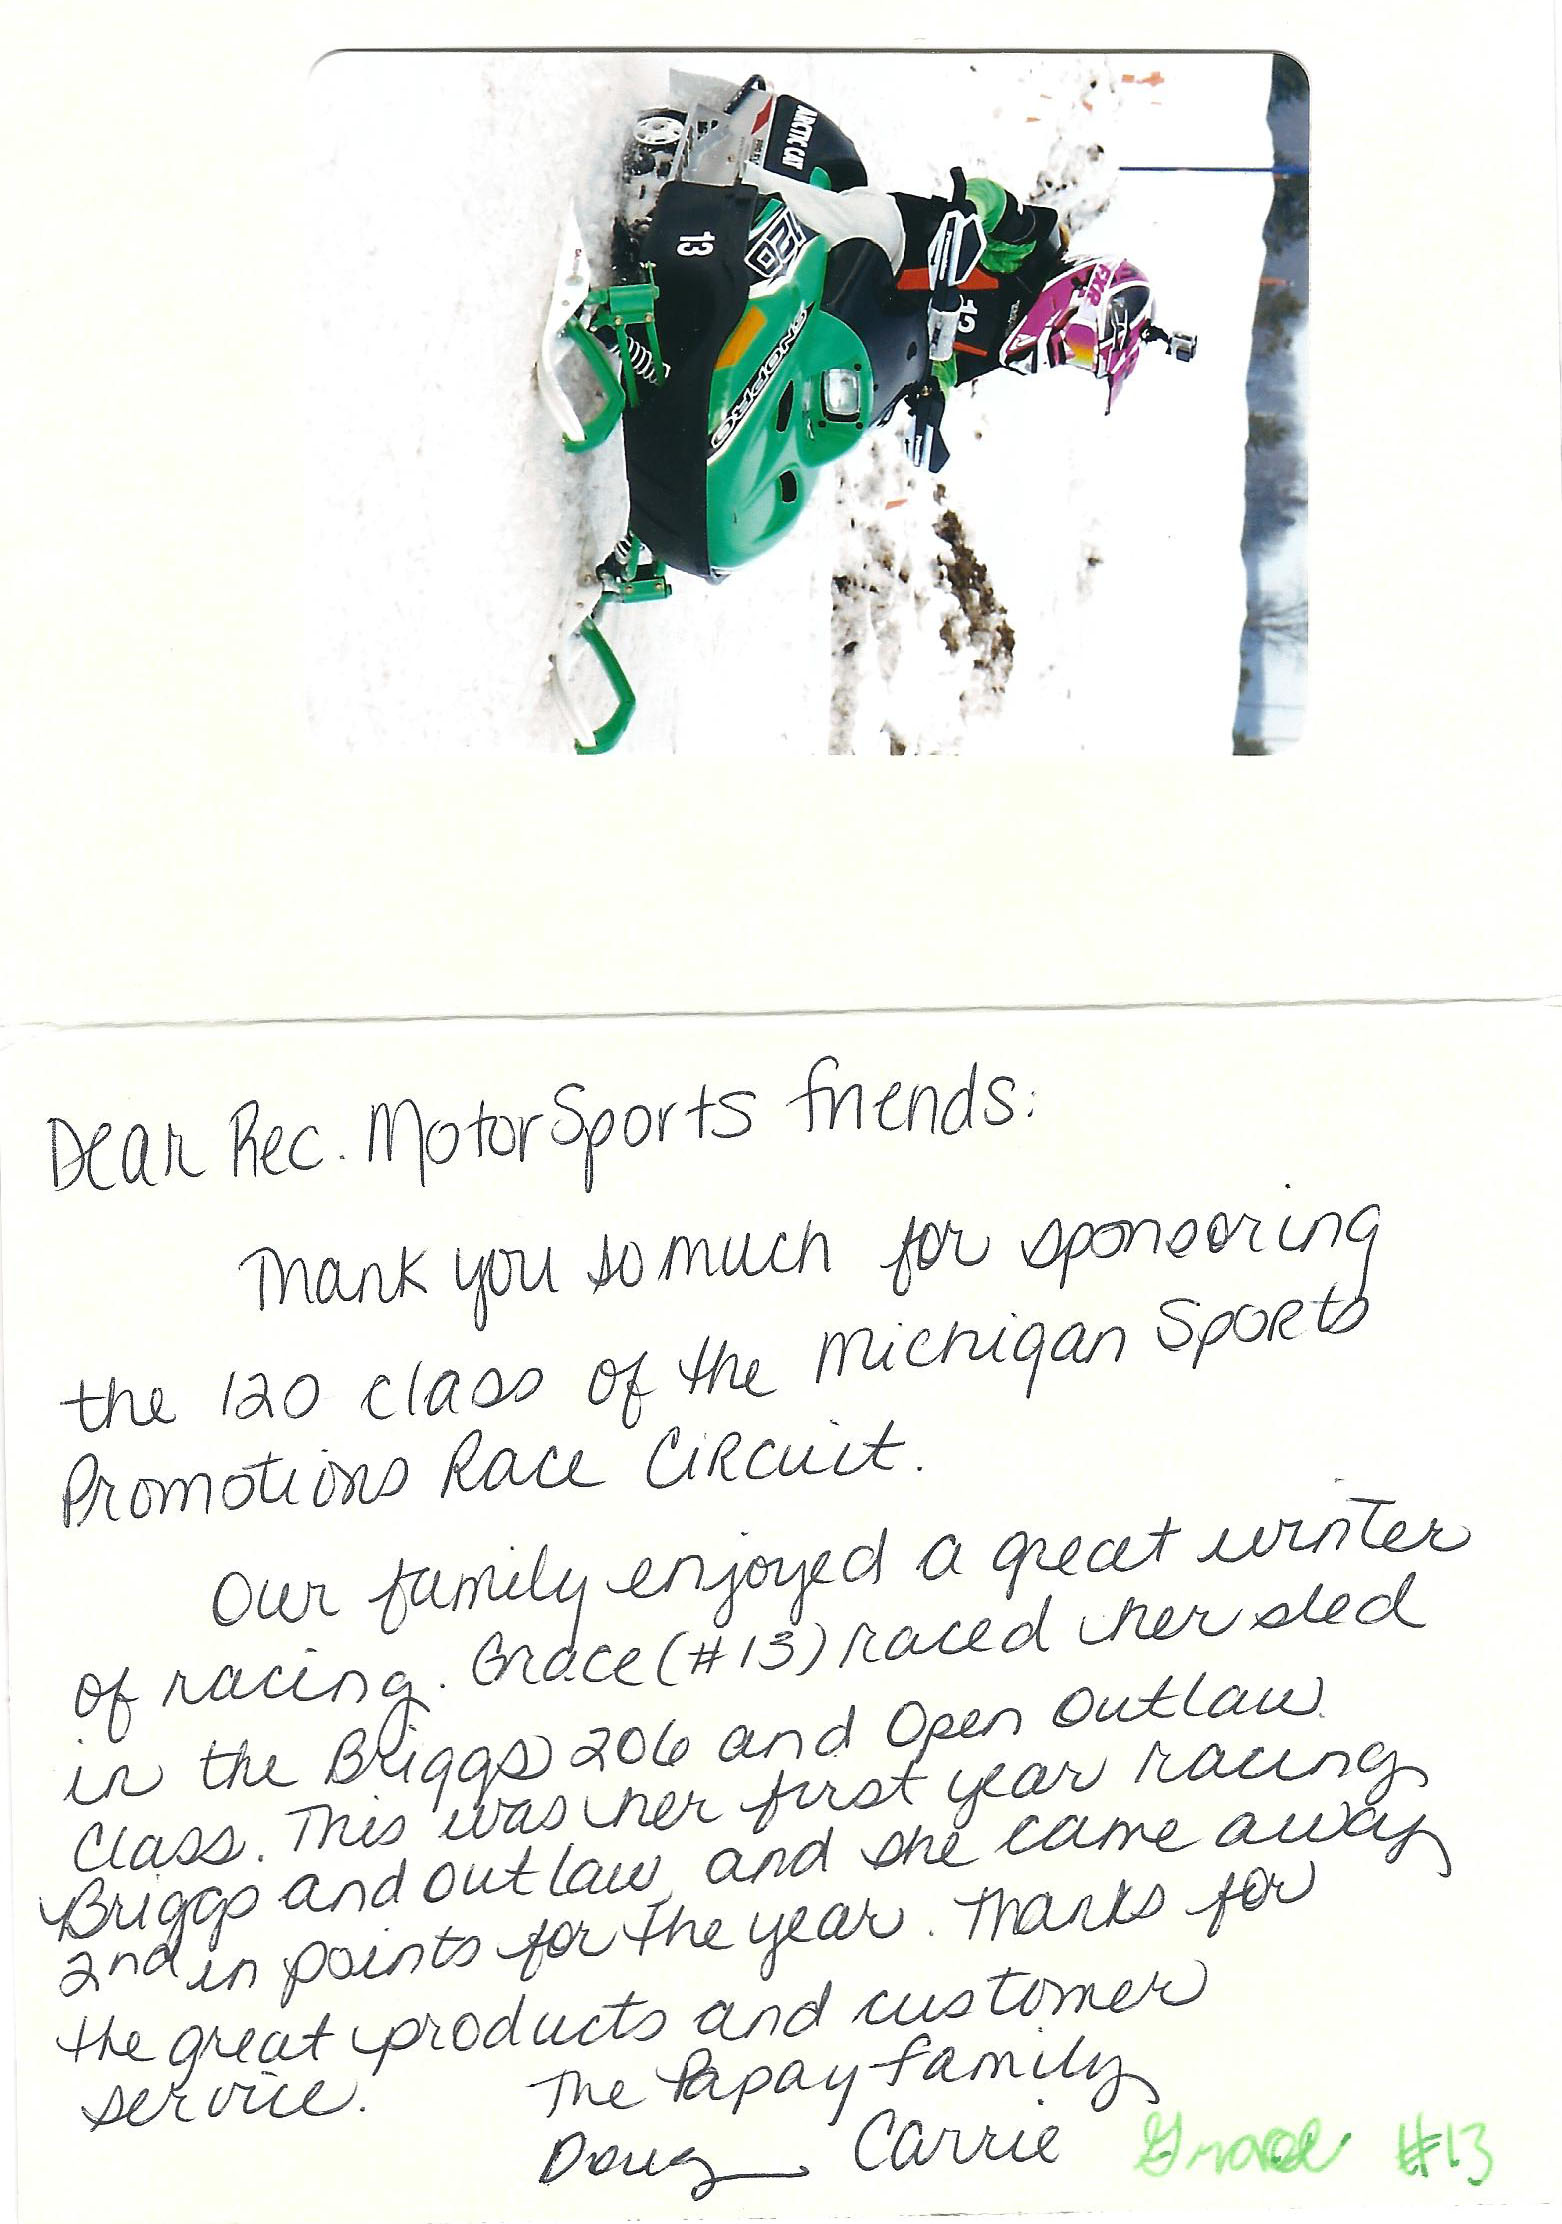 ARCTIC CAT
13
120
SNOPRO
FXR
Dear Rec. MotorSports friends:
Thank you so much for sponsoring
the 120 class of the Michigan Sports
Promotions Race Circuit.
Our family enjoyed a great winter
of racing. Grace (#13) raced her sled
in the Briggs 206 and Open Outlaw
Class. This was her first year racing
Briggs and outlaw and she came away
2nd in points for the year. Thanks for
the great products and customer
service.
The Papay family
Doug Carrie Grace #13